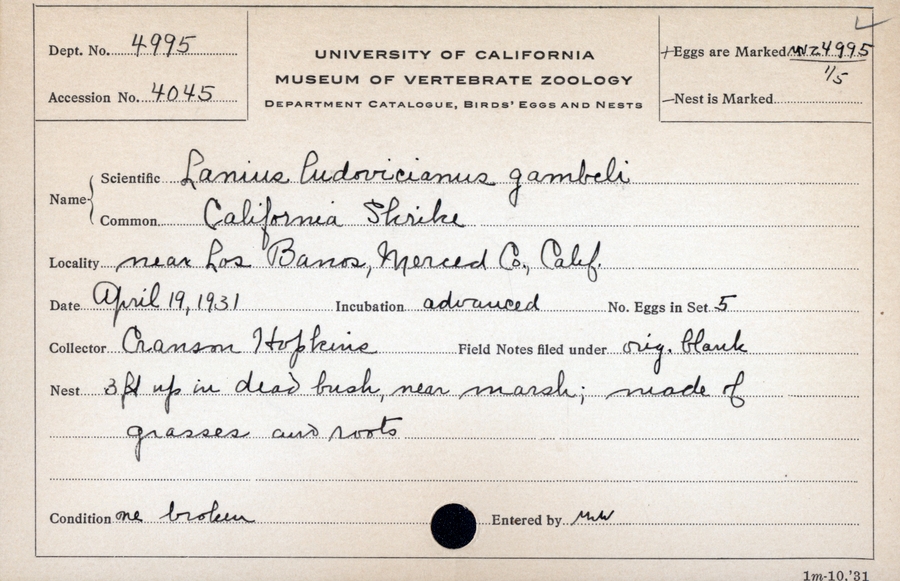 Dept. No. 4995
Accession No. 4045
UNIVERSITY OF CALIFORNIA
MUSEUM OF VERTEBRATE ZOOLOGY
DEPARTMENT CATALOGUE, BIRDS' EGGS AND NESTS
+Eggs are Marked MVZ4995
1/5
—Nest is Marked
Name
Scientific Lanius ludovicianus gambeli
Common California Shrike
Locality near Los Banos, Merced Co., Calif.
Date April 19, 1931 Incubation advanced No. Eggs in Set 5
Collector Cranson Hopkins Field Notes filed under orig. blank
Nest 3 ft up in dead bush, near marsh; made of
grasses and roots
Condition one broken Entered by
1m-10,'31